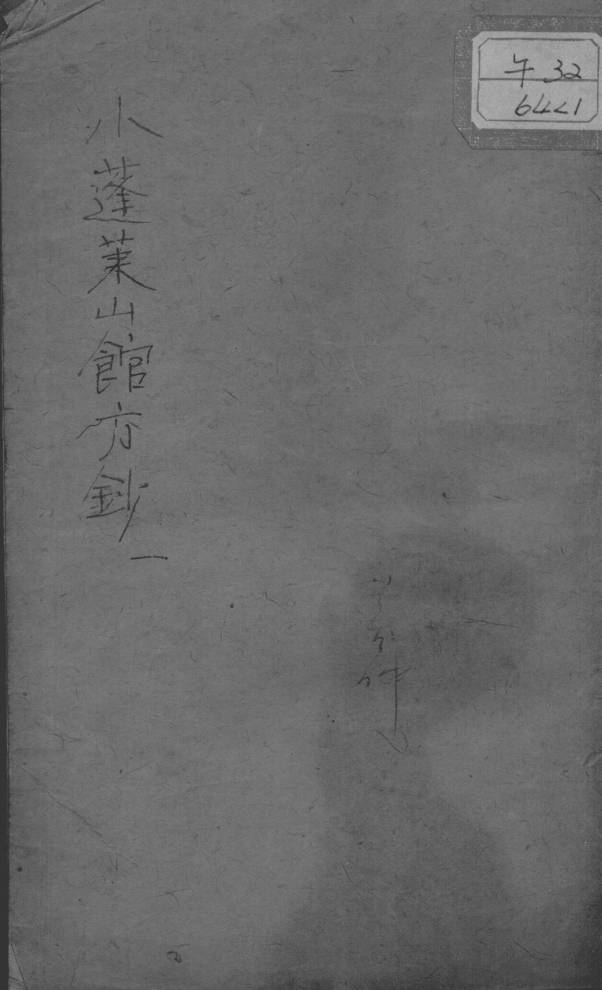 午 32
6441
小蓬萊山館方鈔
一